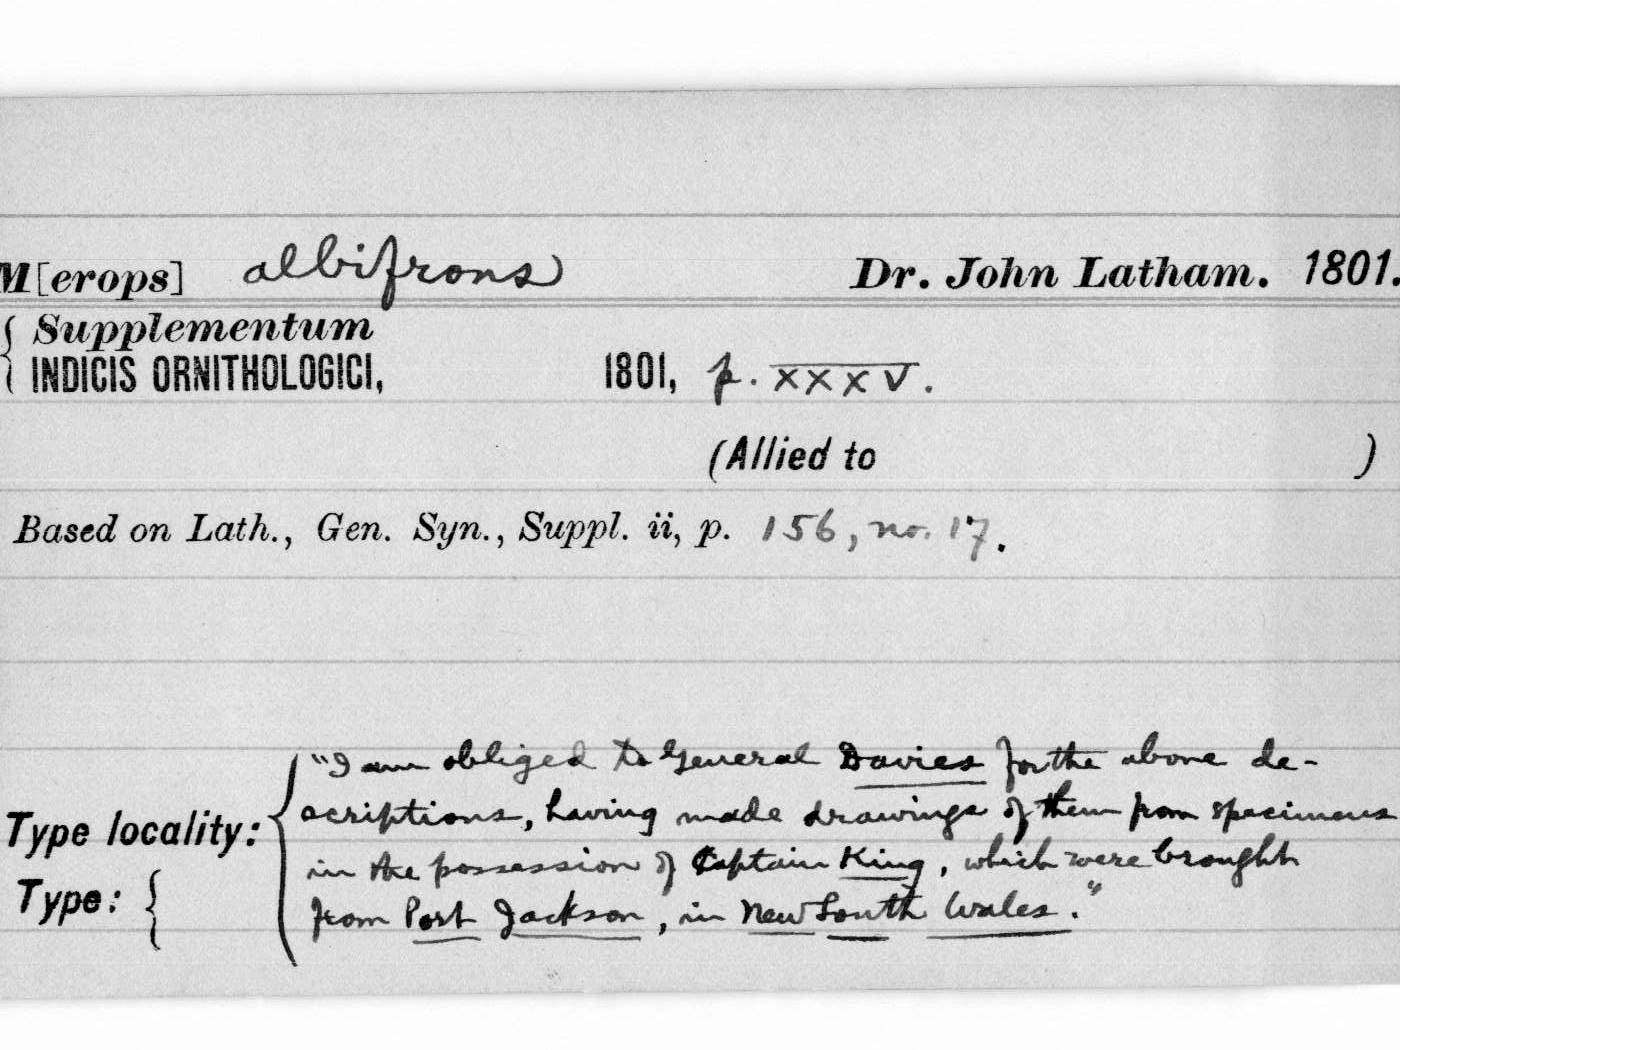 M[erops] albifrons Dr. John Latham. 1801.
Supplementum
INDICIS ORNITHOLOGICI, 1801, p. xxxv.
(Allied to )
Based on Lath., Gen. Syn., Suppl. ii, p. 156, no. 17.
"I am obliged to General Davies for the above de-
scriptions, having made drawings of them from specimens
Type locality:
in the possession of Captain King, which were brought
Type:
from Port Jackson, in New South Wales."